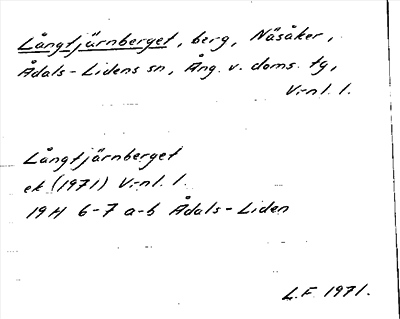 Långtjärnberget, berg, Näsåker,
Ådals-Lidens sn, Ång. v. doms. tg,
V:nl. l.
Långtjärnberget
ek (1971) V:nl. l.
19H 6-7 a-b Ådals-Liden
L.F. 1971.